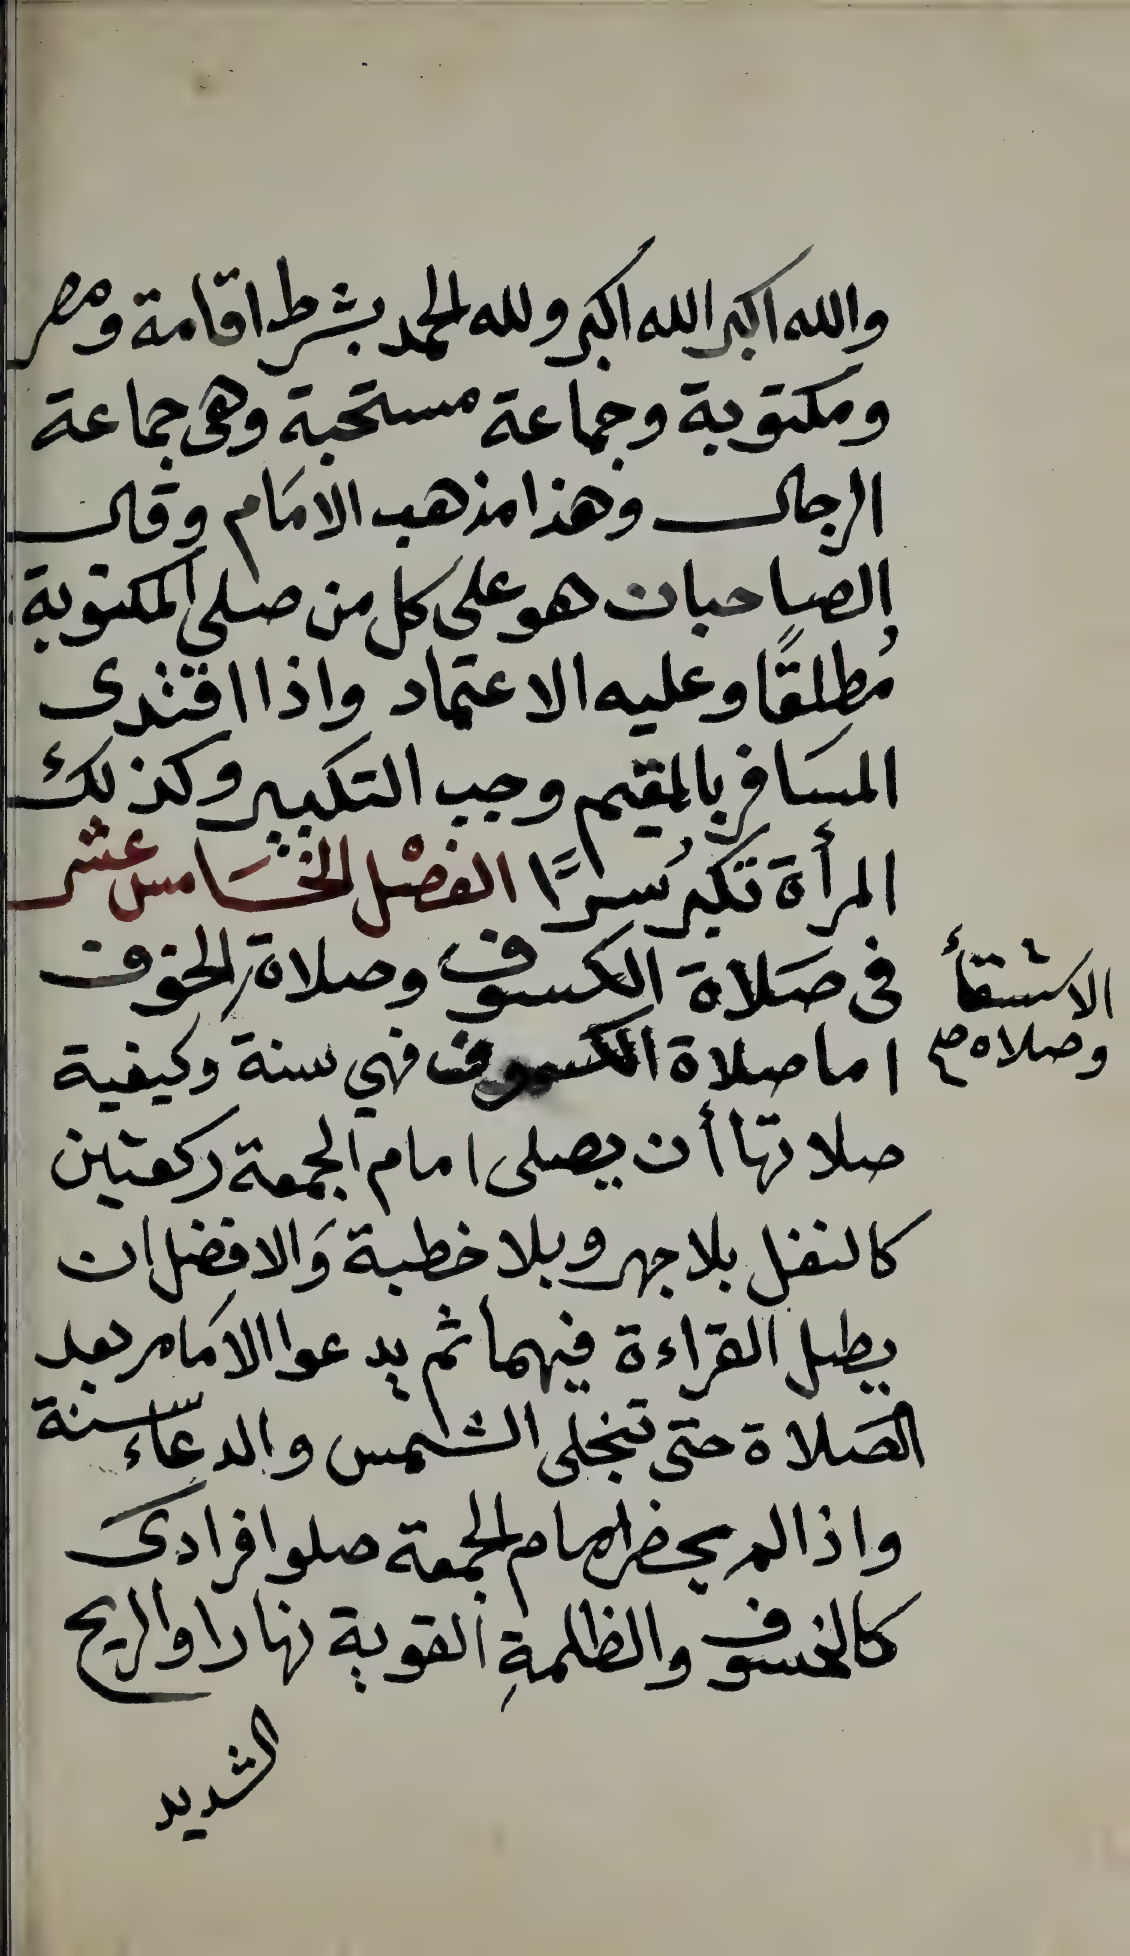 والله اكبر الله اكبر ولله الحمد بشرط اقامة ومصر
ومكتوبة وجماعة مستحبة وهى جماعة
الرجال وهذا مذهب الامَام وقال
الصاحبان هو على كل من صلى المكتوبة
مُطلقًا وعليه الاعتماد واذا اقتدى
المسَافر بالمقيم وجب التكبير وكذلك
المرأة تكبر سرًّا الفصْل الخَامس عشر
فى صَلاة الكسوف وصلاة الخوف
الاستسقأ
وصلاة صح
اما صلاة الكسوف فهي سنة وكيفية
صلاتها أن يصلى امام الجمعة ركعتين
كالنفل بلا جهر وبلا خطبة وَالافضل ان
يطل القراءة فيهما ثم يدعوا الامَام بعد
الصَلاة حتى تنجلى الشمس والدعاء سنة
واذا لم يحضر امام الجمعة صلوا فرادى
كالخسوف والظلمةِ القوية نهارا والريح
الشديد